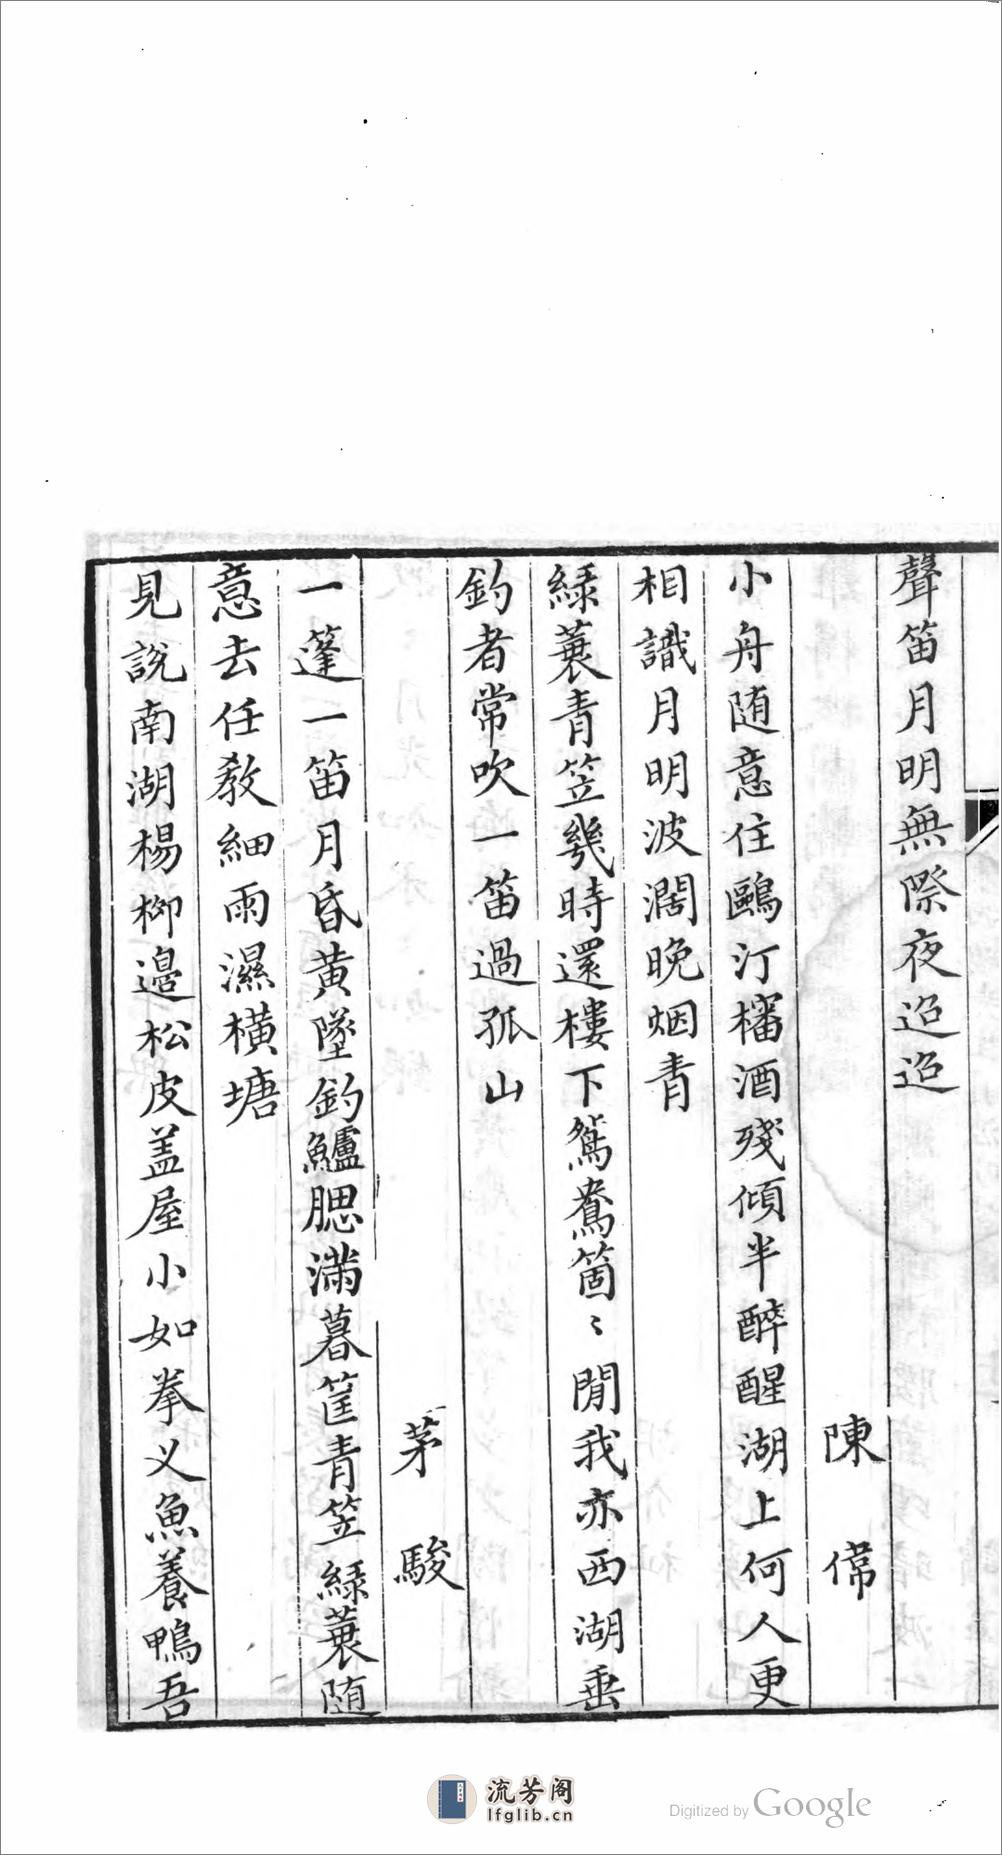 聲笛月明無際夜迢迢
陳 常
小舟随意住鷗汀檣酒殘傾半醉醒湖上何人更
相識月明波濶晚烟青
綠蓑青笠幾時還樓下鴛鴦箇〻閒我亦西湖垂
釣者常吹一笛過孤山
茅 駿
一篷一笛月昏黃墜釣鱸腮滿暮筐青笠綠蓑随
意去任教細雨濕橫塘
見說南湖楊柳邉松皮盖屋小如拳义魚養鴨吾
流芳阁
lfglib.cn
Digitized by Google